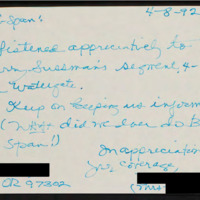 4-8-92
-Span:
listened appreciatively to
Sussman's segment, 4-
Watergate.
Keep on keeping us inform
(What did we ever do B
Span!)
In appreciation
your coverage,
OR 97302
(Mrs